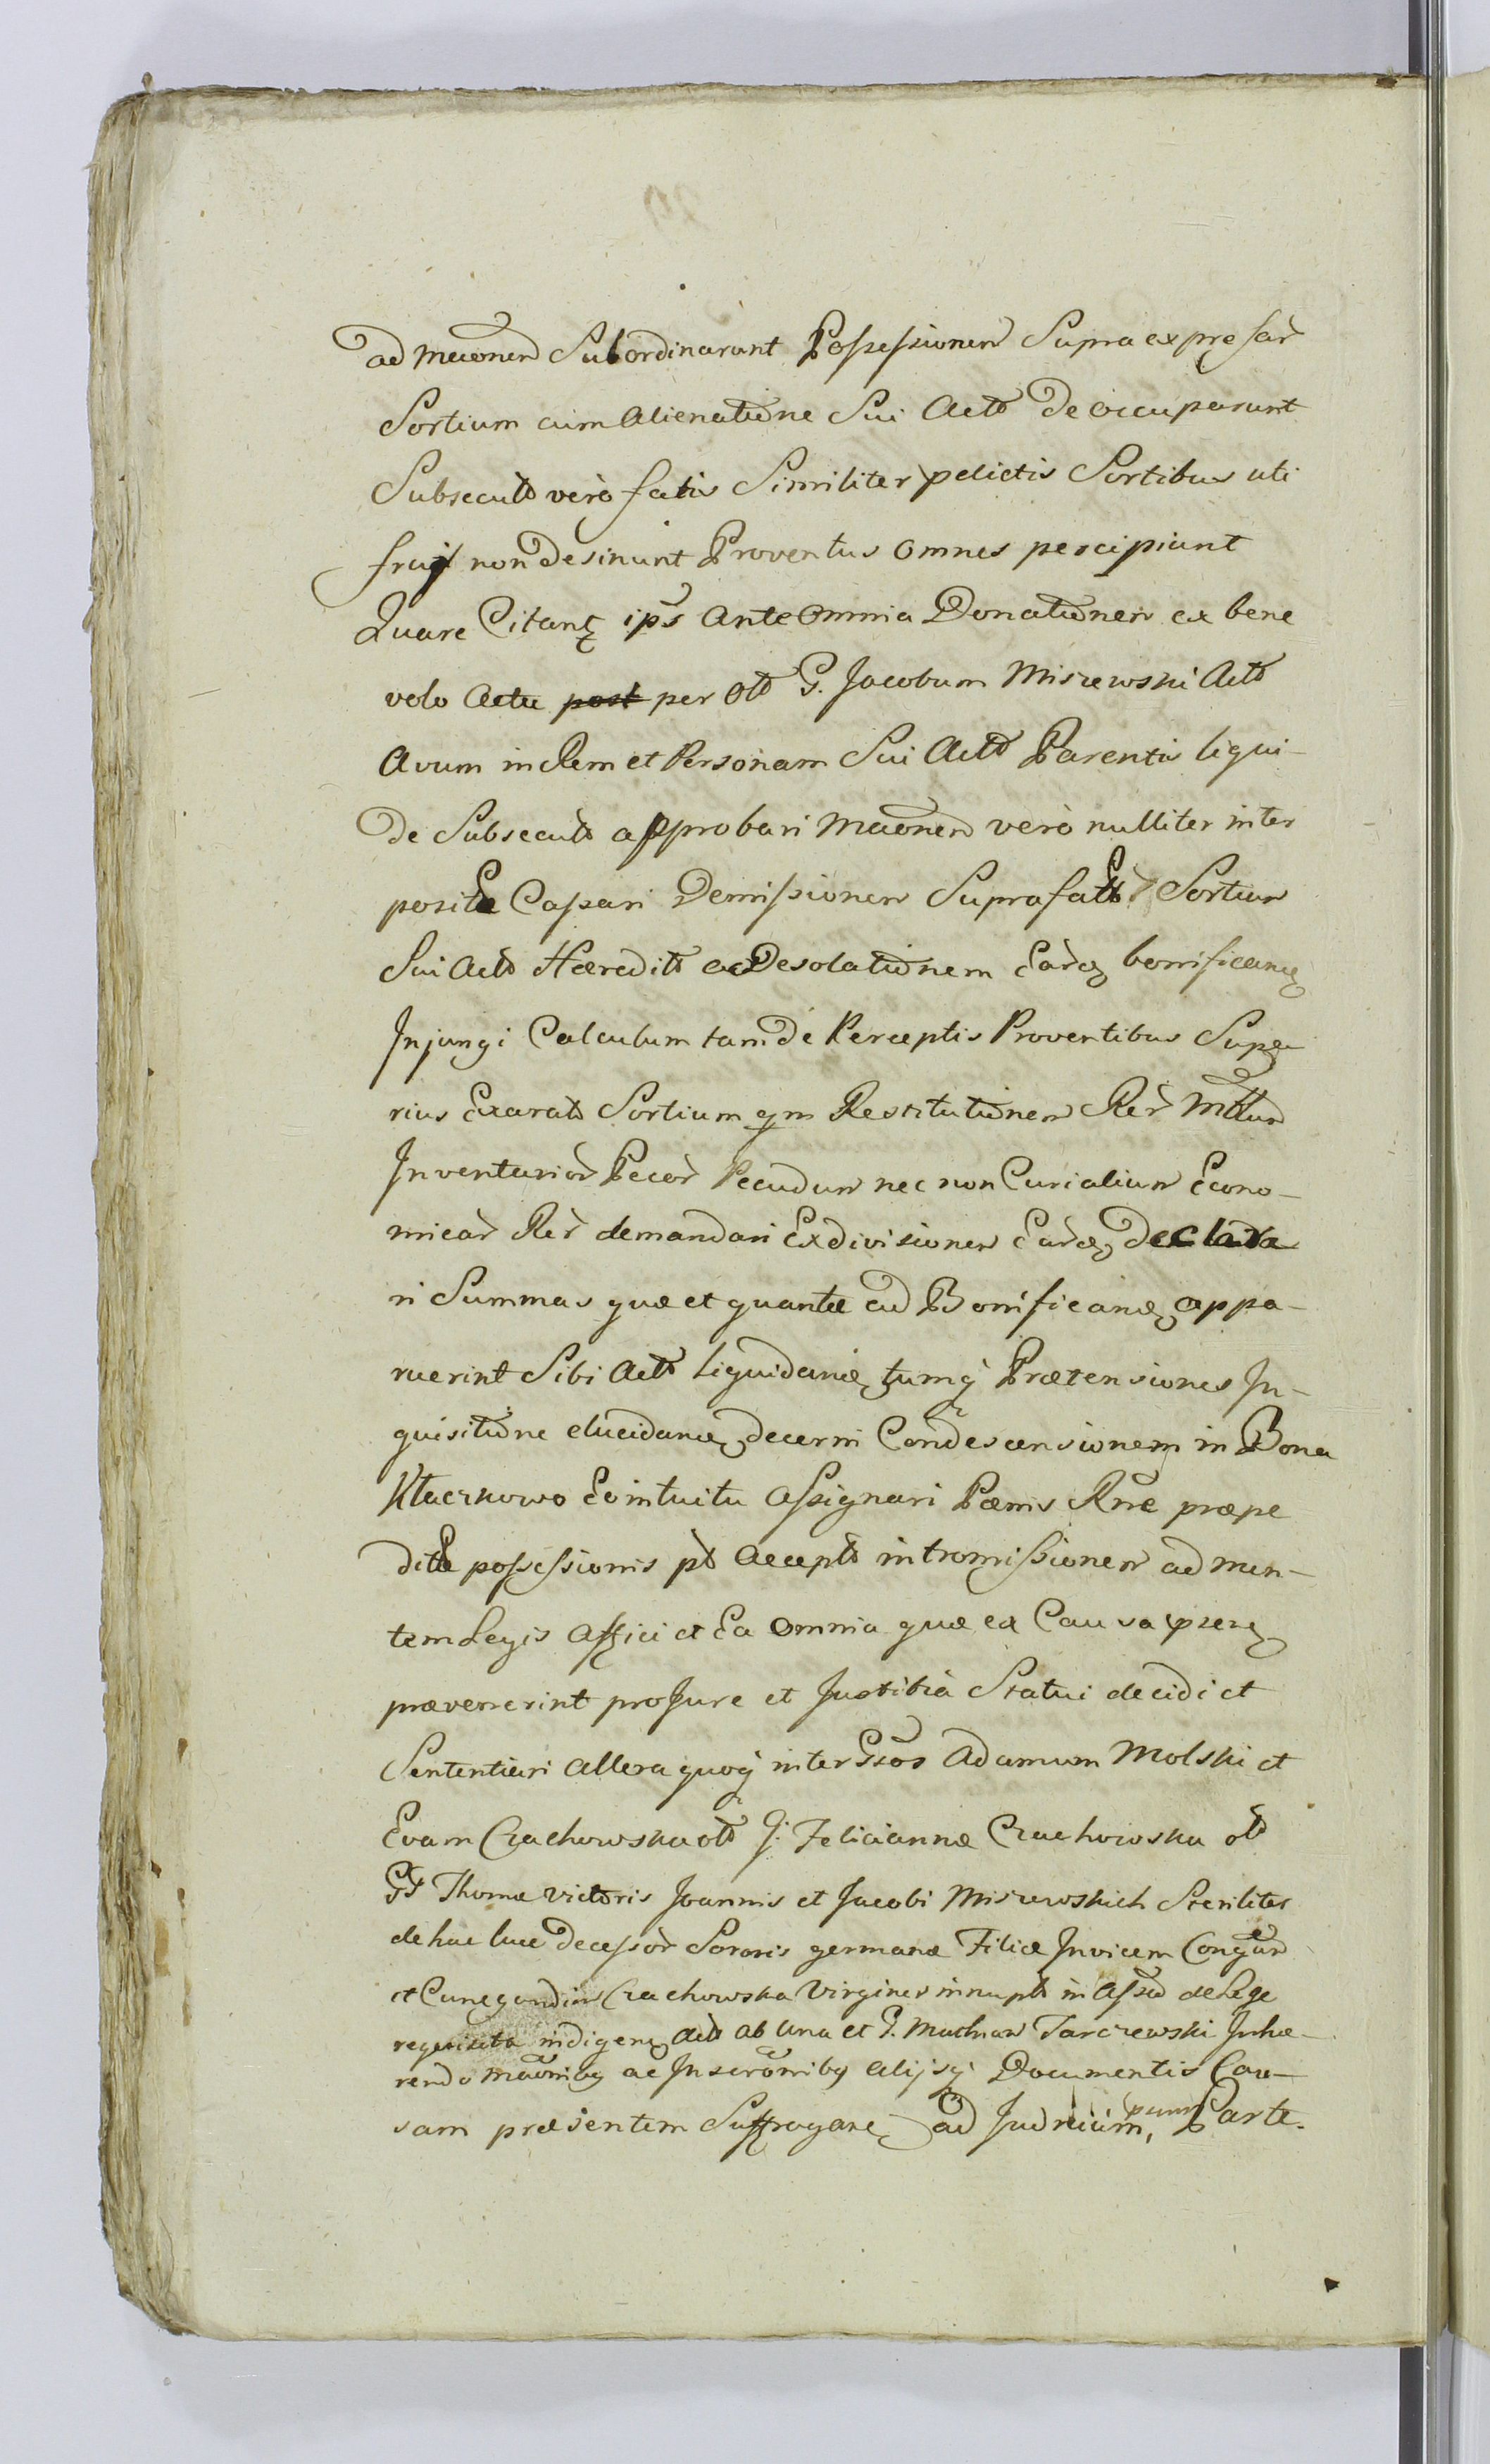 ad mewnen Subordinarunt Possessionem Supra expressar
Sortium cum Alienatione Sui Acto de occuparunt
Subsecuto vero fatis Similiter relictis Sortibus uti
frui non desinunt Proventus omnes percipiunt
Quare Citant ips Ante Omnia Donationem ex bene
volo Actu post per Ott G. Jacobum Miszewski Acto
Avum in Rem et Personam Sui Acto Parentis liqui-
de Subsecuto approbari maonen vero nulliter inter
posite Cassari Demissionem Suprafatt Sortium
Sui Acto Haeredit ac Desolationem Earq bonificanq
Injungi Calculum tam de Perceptis Proventibus Supe
rius Exarato Sortium qm Restitutionem Rer Mttum
Inventarior Pecor Pecudum nec non Curialium Econo-
micar Rer demandari Exdivisionem Earq declara
ri Summas quae et quantae ad Bonificanq appa-
ruerint Sibi Acto liquidanq tumq Praetensiones In-
quisitione elucidanq decerni Condescensionem in Bona
Kłaczkowo Eo intuitu Assignari Paenis Rne praepe
dite possessionis pt Accepto intromissionem ad men-
tem Legis Affici et Ea Omnia quae ex Causa prnq
praevenerint pro Jure et Justitia Statui decidi et
Sententiari Altera quoq inter Gsos Adamum Molski et
Evam Czachowska ott G. Felicianna Czachowska ott
GG Thomae Victoris Joannis et Jacobi Miszewskich Steriliter
de hac luce decessor Sororis germanae Filiae Invicem Congar
et Cunegundim Czachowska Virgines innupt in Assa de Lege
requisita indigenq Acto ab una et G. Mathiam Tarczewski Inhae-
rendo maonibq ac Inscronibq alijsq Documentis Cau-
sam praesentem Suffragane ad Judicium, pnm Parte.